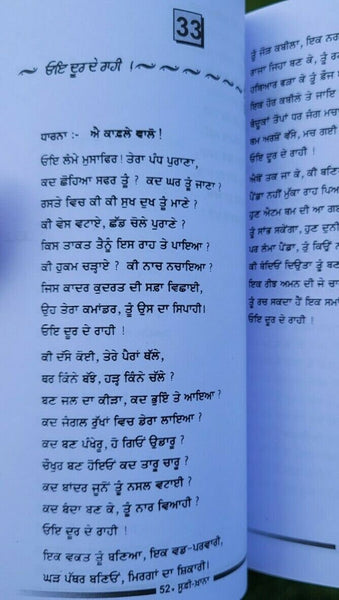 33
ਓਇ ਦੂਰ ਦੇ ਰਾਹੀ !
ਧਾਰਨਾ :- ਐ ਕਾਫ਼ਲੇ ਵਾਲੋ !
ਓਇ ਲੰਮੇ ਮੁਸਾਫਿਰ! ਤੇਰਾ ਪੰਧ ਪੁਰਾਣਾ,
ਕਦ ਛੋਹਿਆ ਸਫਰ ਤੂੰ ? ਕਦ ਘਰ ਤੂੰ ਜਾਣਾ?
ਰਸਤੇ ਵਿਚ ਕੀ ਕੀ ਸੁਖ ਦੁਖ ਤੂੰ ਮਾਣੇ ?
ਕੀ ਵੇਸ ਵਟਾਏ, ਛੱਡ ਚੋਲੇ ਪੁਰਾਣੇ ?
ਕਿਸ ਤਾਕਤ ਤੈਨੂੰ ਇਸ ਰਾਹ ਤੇ ਪਾਇਆ ?
ਕੀ ਹੁਕਮ ਚੜ੍ਹਾਏ ? ਕੀ ਨਾਚ ਨਚਾਇਆ ?
ਜਿਸ ਕਾਦਰ ਕੁਦਰਤ ਦੀ ਸਫ਼ਾ ਵਿਛਾਈ,
ਉਹ ਤੇਰਾ ਕਮਾਂਡਰ, ਤੂੰ ਉਸ ਦਾ ਸਿਪਾਹੀ।
ਓਇ ਦੂਰ ਦੇ ਰਾਹੀ !
ਕੀ ਦੱਸੇ ਕੋਈ, ਤੇਰੇ ਪੈਰਾਂ ਥੱਲੇ,
ਥਰ ਕਿੰਨੇ ਬੱਝੇ, ਹੜ੍ਹ ਕਿੰਨੇ ਚੱਲੇ ?
ਬਣ ਜਲ ਦਾ ਕੀੜਾ, ਕਦ ਭੁਇੰ ਤੇ ਆਇਆ ?
ਕਦ ਜੰਗਲ ਰੁੱਖਾਂ ਵਿਚ ਡੇਰਾ ਲਾਇਆ ?
ਕਦ ਬਣ ਪੰਖੇਰੂ, ਹੋ ਗਿਓਂ ਉਡਾਰੂ ?
ਚੌਖੁਰ ਬਣ ਹੋਇਓਂ ਕਦ ਤਾਰੂ ਚਾਰੂ ?
ਕਦ ਬਾਂਦਰ ਜੂਨੋਂ ਤੂੰ ਨਸਲ ਵਟਾਈ ?
ਕਦ ਬੰਦਾ ਬਣ ਕੇ, ਤੂੰ ਨਾਰ ਵਿਆਹੀ ?
ਓਇ ਦੂਰ ਦੇ ਰਾਹੀ !
ਇਕ ਵਕਤ ਤੂੰ ਬਣਿਆ, ਇਕ ਵਡ-ਪਰਵਾਰੀ,
ਘੜ ਪੱਥਰ ਬਣਿਓਂ, ਮਿਰਗਾਂ ਦਾ ਸ਼ਿਕਾਰੀ।
52 • ਸੂਫ਼ੀ-ਖ਼ਾਨਾ
ਤੂੰ ਜੋੜ ਕਬੀਲਾ, ਇਕ
ਰਾਜਾ ਜਿਹਾ ਬਣ ਕੇ, ਤੂੰ
ਹਥਿਆਰ ਵੜਾ ਕੇ ਤੂੰ ਫ਼ੌਜ
ਇਕ ਹੋਰ ਕਬੀਲੇ ਤੇ ਜਾਇ
ਬੰਦੂਕਾਂ ਤੋਪਾਂ ਧਰ ਜੰਗ
ਬਮ ਅਰਸ਼ੋਂ ਵੱਸੇ, ਮਚ ਗਈ
ਓਇ ਦੂਰ ਦੇ ਰਾਹੀ !
ਐਥੋਂ ਤਕ ਜਾ ਕੇ, ਕੀ
ਪੈਂਡਾ ਨਹੀਂ ਮੁੱਕਾ ਰਾਹ
ਹੁਣ ਐਟਮ ਬਮ ਦੀ ਆ
ਤੂੰ ਸਾਂਭ ਸਕੇਂਗਾ, ਹੁਣ
ਪਰ ਲੰਮਾ ਪੈਂਡਾ, ਤੂੰ ਕਿਉਂ
ਕੀ ਬੰਦਿਓਂ ਦਿਉਤਾ ਤੂੰ
ਇਕ ਰੀਝ ਅਮਨ ਦੀ ਜੇ
ਤੂੰ ਰਚ ਸਕਦਾ ਹੈਂ ਇਕ
ਓਇ ਦੂਰ ਦੇ ਰਾਹੀ !